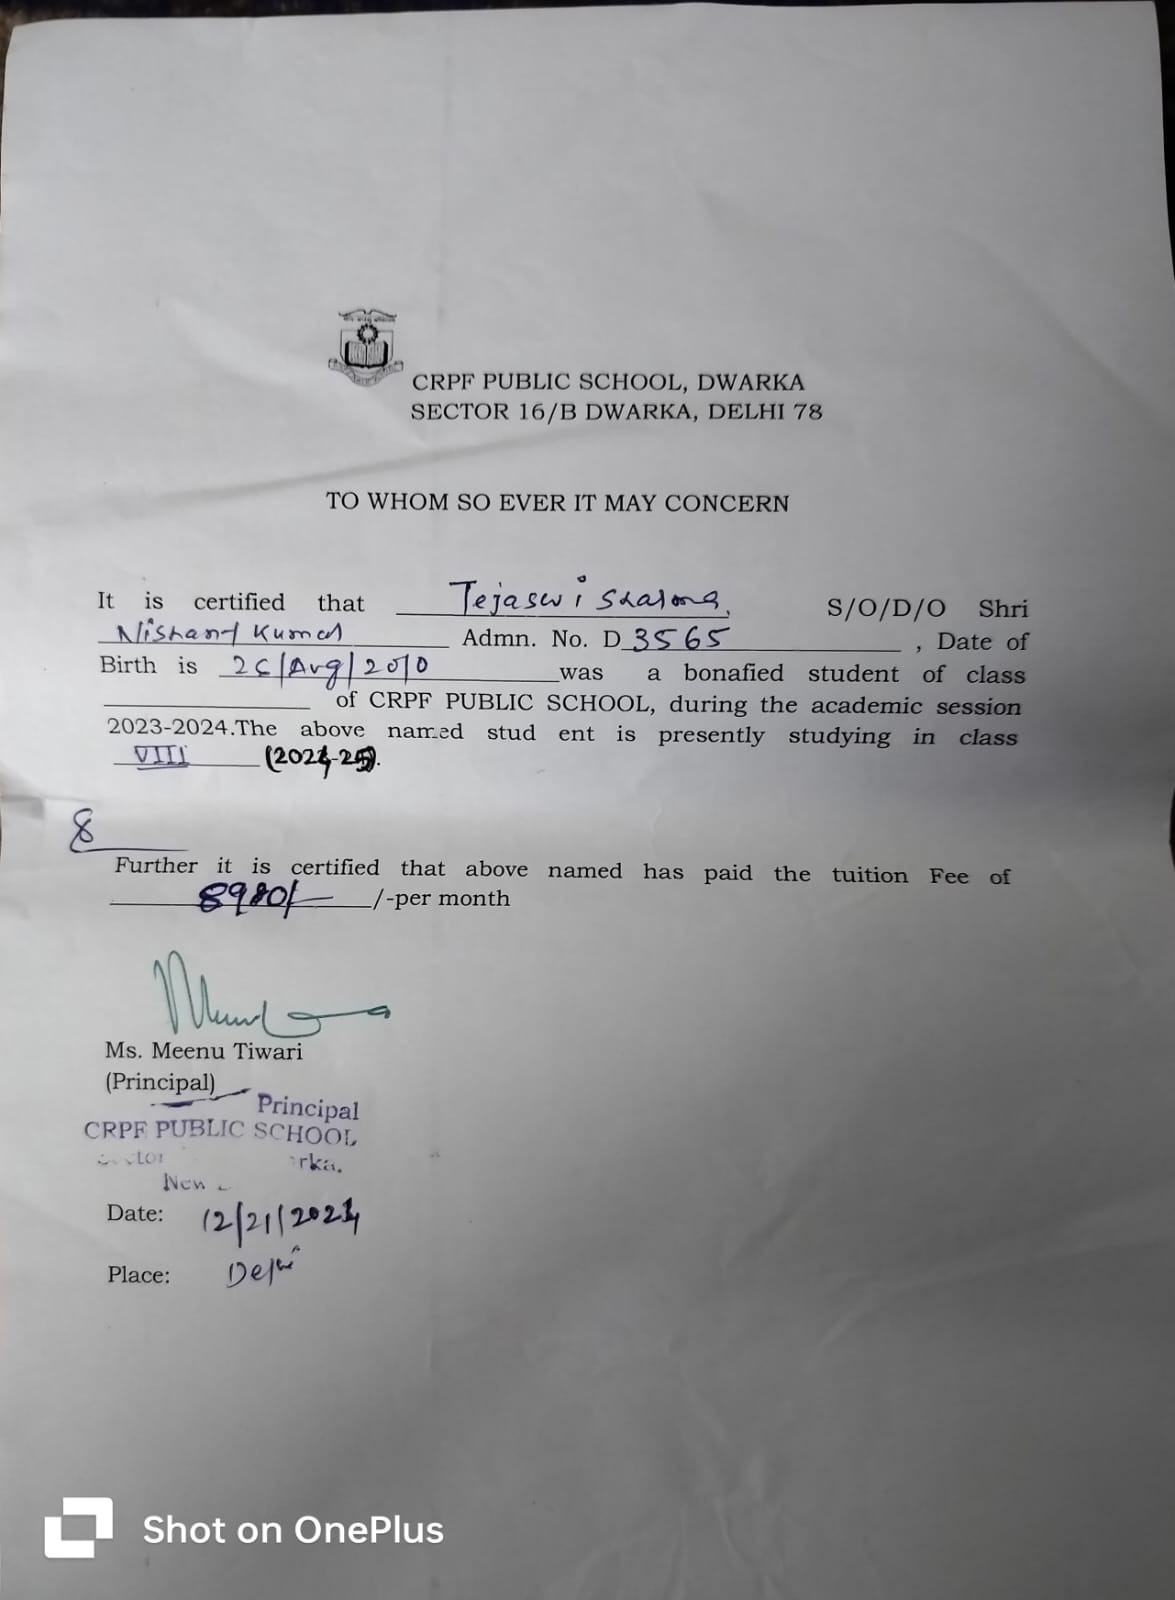 CRPF PUBLIC SCHOOL, DWARKA
SECTOR 16/B DWARKA, DELHI 78
TO WHOM SO EVER IT MAY CONCERN
It is certified that Tejaswi Sharma, S/O/D/O Shri
Nishant Kumar Admn. No. D 3565 , Date of
Birth is 26/Aug/2010 was a bonafied student of class
of CRPF PUBLIC SCHOOL, during the academic session
2023-2024.The above named stud ent is presently studying in class
VIII (2024-25).
8
Further it is certified that above named has paid the tuition Fee of
8980/- /-per month
Ms. Meenu Tiwari
(Principal)
Principal
CRPF PUBLIC SCHOOL
New
Date: 12/21/2024
Place: Delhi
Shot on OnePlus